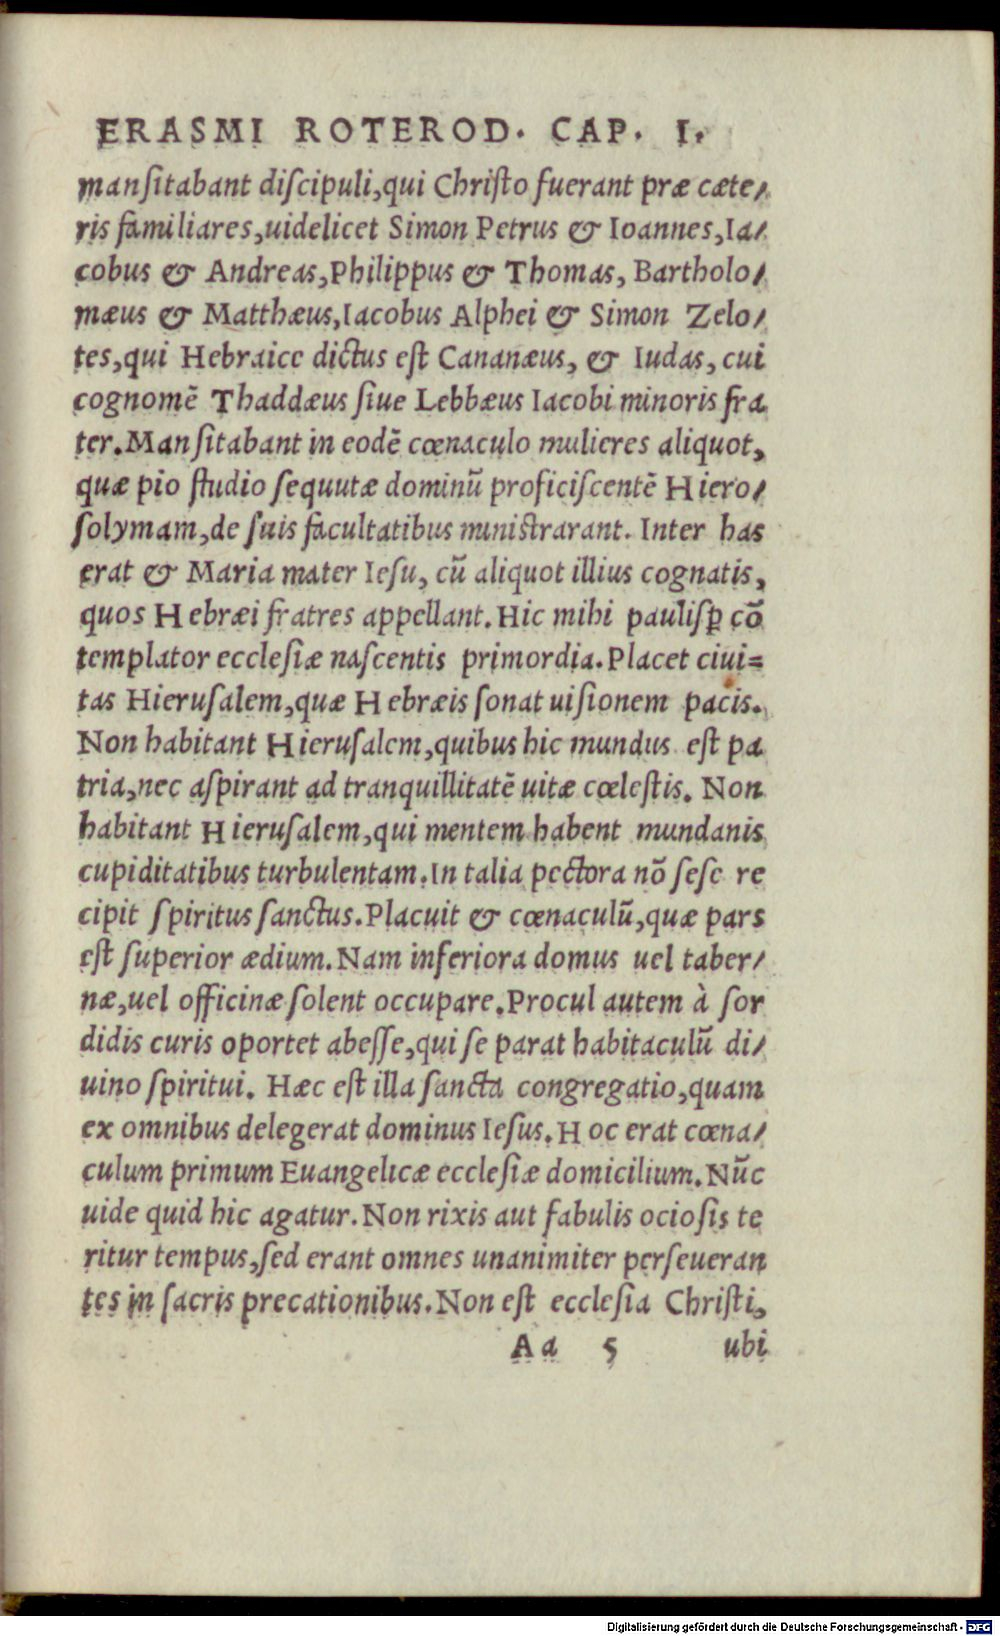 ERASMI ROTEROD. CAP. I.
mansitabant discipuli,qui Christo fuerant præ cæte/
ris familiares,uidelicet Simon Petrus & Ioannes,Ia/
cobus & Andreas,Philippus & Thomas, Bartholo/
mæus & Matthæus,Iacobus Alphei & Simon Zelo/
tes,qui Hebraice dictus est Cananæus, & Iudas, cui
cognomē Thaddæus siue Lebbæus Iacobi minoris fra
ter.Mansitabant in eodē cœnaculo mulieres aliquot,
quæ pio studio sequutæ dominū proficiscentē Hiero/
solymam,de suis facultatibus ministrarant. Inter has
erat & Maria mater Iesu, cū aliquot illius cognatis,
quos Hebræi fratres appellant.Hic mihi paulisꝑ cō
templator ecclesiæ nascentis primordia.Placet ciui=
tas Hierusalem,quæ Hebræis sonat uisionem pacis.
Non habitant Hierusalem,quibus hic mundus est pa
tria,nec aspirant ad tranquillitatē uitæ cœlestis. Non
habitant Hierusalem,qui mentem habent mundanis
cupiditatibus turbulentam.In talia pectora nō sese re
cipit spiritus sanctus.Placuit & cœnaculū,quæ pars
est superior ædium.Nam inferiora domus uel taber/
næ,uel officinæ solent occupare.Procul autem à sor
didis curis oportet abesse,qui se parat habitaculū di/
uino spiritui. Hæc est illa sancta congregatio,quam
ex omnibus delegerat dominus Iesus.Hoc erat cœna/
culum primum Euangelicæ ecclesiæ domicilium.Nūc
uide quid hic agatur.Non rixis aut fabulis ociosis te
ritur tempus,sed erant omnes unanimiter perseueran
tes in sacris precationibus.Non est ecclesia Christi,
Aa 5 ubi
Digitalisierung gefördert durch die Deutsche Forschungsgemeinschaft - DFG